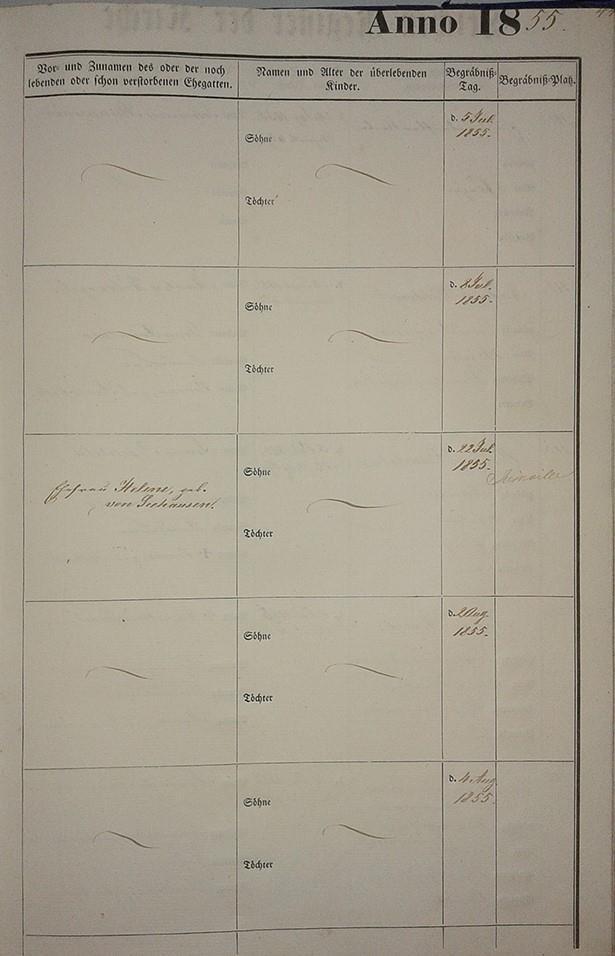 Anno 1855.
Vor- und Zunamen des oder der noch
lebenden oder schon verstorbenen Ehegatten.
Namen und Alter der überlebenden
Kinder.
Begräbniß-
Tag.
Begräbniß-Platz.
Söhne
Töchter
d. 5 Jul.
1855.
Söhne
Töchter
d. 8 Jul.
1855.
Ehefrau Helene, geb.
von Seehausen.
Söhne
Töchter
d. 22 Jul.
1855.
Söhne
Töchter
d. 2 Aug.
1855.
Söhne
Töchter
d. 4 Aug
1855.